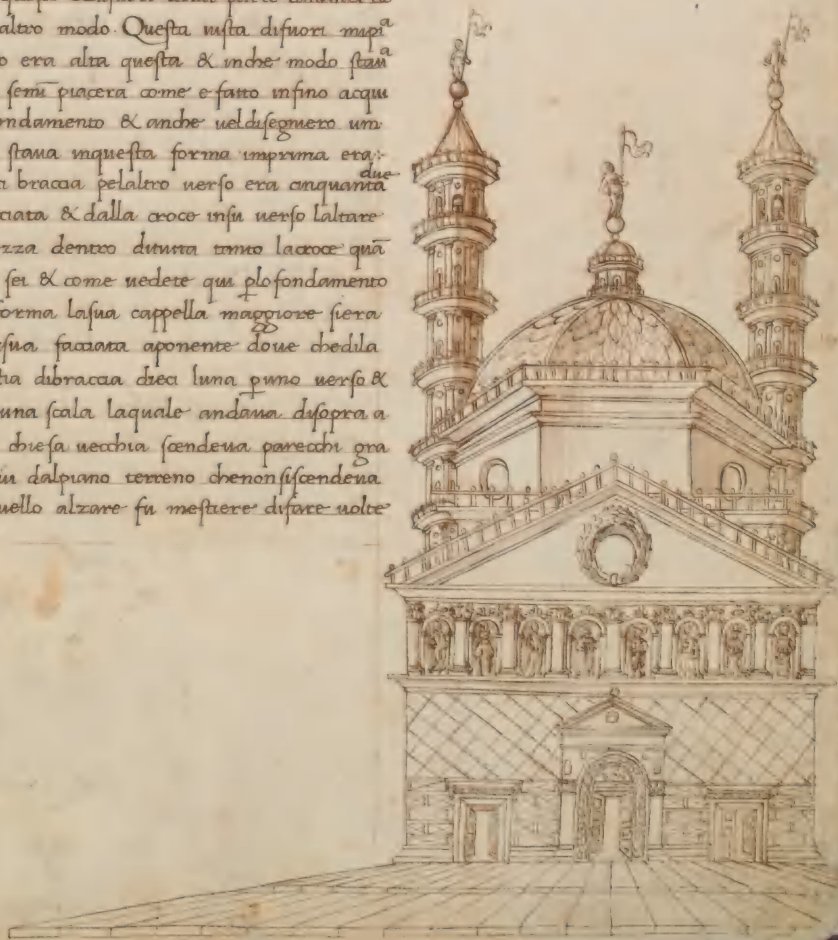 altro modo. Questa uista difuori mipiª
o era alta questa & inche modo stauª
semi piacera come e fatto infino acqui
ondamento & anche ueldisegniero um
staua inquesta forma imprima era
braccia pelaltro uerso era cinquanta due
ciata & dalla croce insu uerso laltare
zza dentro dituta tanto lacroce quā
sei & come uedete qui plo fondamento
orma lasua cappella maggiore siera
sua facciata aponente doue chedila
dibraccia dieci luna p uno uerso &
una scala laquale andaua disopra a
chiesa uecchia scendeua parecchi gra
dalpiano terreno chenonsiscendeua
uello alzare fu mestiere difare uolte